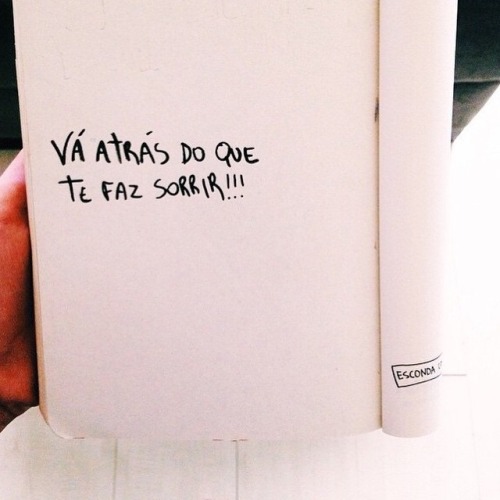 VÁ ATRÁS DO QUE
TE FAZ SORRIR!!!
ESCONDA